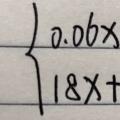 0.06x
18x+